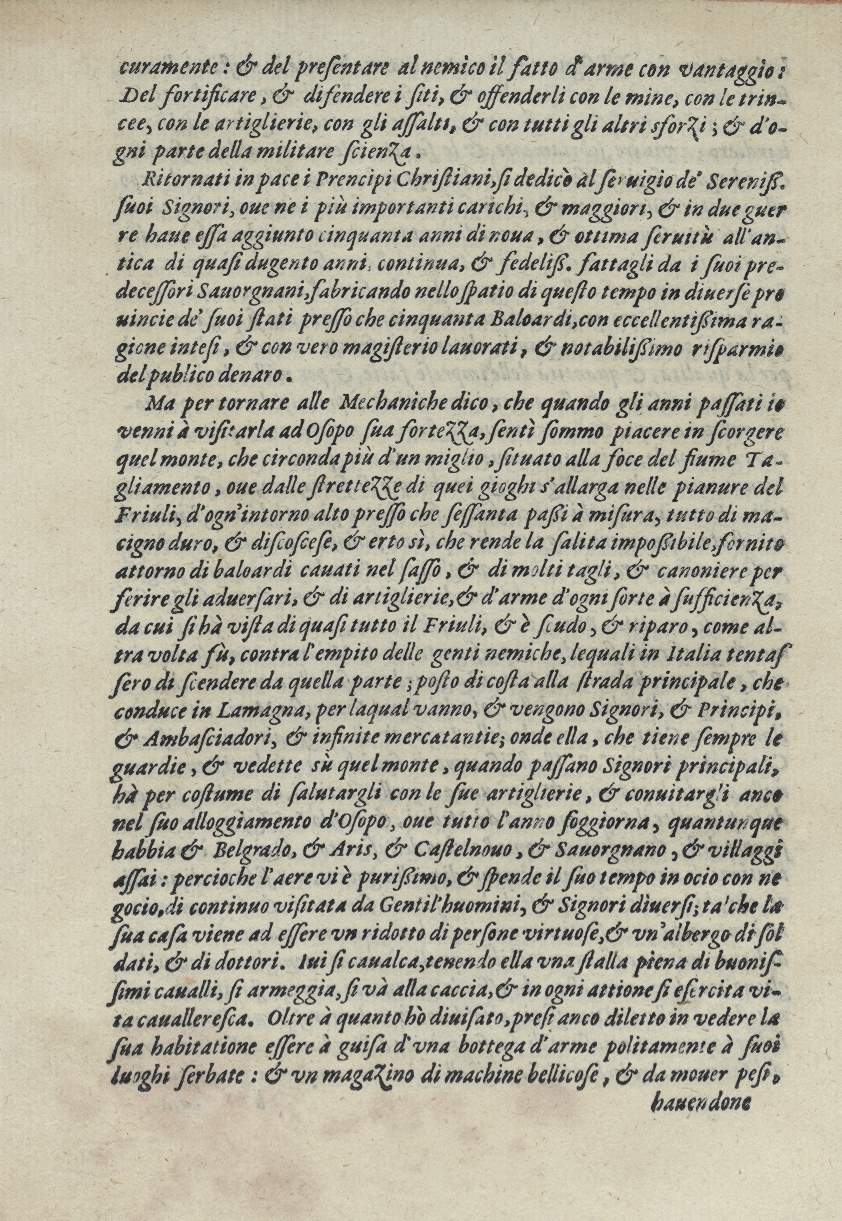 curamente: & del preſentare al nemico il fatto d'arme con vantaggio:
Del fortificare, & difendere i ſiti, & offenderli con le mine, con le trin-
cee, con le artiglierie, con gli aſſalti, & con tutti gli altri sforzi; & d'o-
gni parte della militare ſcienza.
Ritornati in pace i Prencipi Chriſtiani, ſi dedicò al ſeruigio de' Sereniß.
ſuoi Signori, oue ne i più importanti carichi, & maggiori, & in due guer
re haue eſſa aggiunto cinquanta anni di noua, & ottima ſeruitù all'an-
tica di quaſi dugento anni, continua, & fedeliß. fattagli da i ſuoi pre-
deceſſori Sauorgnani, fabricando nello ſpatio di queſto tempo in diuerſe pro
uincie de' ſuoi ſtati preſſo che cinquanta Baloardi, con eccellentißima ra-
gione inteſi, & con vero magiſterio lauorati, & notabilißimo riſparmio
del publico denaro.
Ma per tornare alle Mechaniche dico, che quando gli anni paſſati io
venni à viſitarla ad Oſopo ſua fortezza, ſentì ſommo piacere in ſcorgere
quel monte, che circonda più d'un miglio, ſituato alla foce del fiume Ta-
gliamento, oue dalle ſtrettezze di quei gioghi s'allarga nelle pianure del
Friuli, d'ogn'intorno alto preſſo che ſeſſanta paßi à miſura, tutto di ma-
cigno duro, & diſcoſceſe, & erto sì, che rende la ſalita impoßibile, fornito
attorno di baloardi cauati nel ſaſſo, & di molti tagli, & canoniere per
ferire gli aduerſari, & di artiglierie, & d'arme d'ogni ſorte à ſufficienza,
da cui ſi hà viſta di quaſi tutto il Friuli, & è ſcudo, & riparo, come al-
tra volta fù, contra l'empito delle genti nemiche, lequali in Italia tentaſ
ſero di ſcendere da quella parte; poſto di coſta alla ſtrada principale, che
conduce in Lamagna, per laqual vanno, & vengono Signori, & Principi,
& Ambaſciadori, & infinite mercatantie; onde ella, che tiene ſempre le
guardie, & vedette sù quel monte, quando paſſano Signori principali,
hà per coſtume di ſalutargli con le ſue artiglierie, & conuitargli anco
nel ſuo alloggiamento d'Oſopo, oue tutto l'anno ſoggiorna, quantunque
habbia & Belgrado, & Aris, & Caſtelnouo, & Sauorgnano, & villaggi
aſſai: percioche l'aere vi è purißimo, & ſpende il ſuo tempo in ocio con ne
gocio, di continuo viſitata da Gentil'huomini, & Signori diuerſi; tal che la
ſua caſa viene ad eſſere vn ridotto di perſone virtuoſe, & vn'albergo di ſol
dati, & di dottori. Iui ſi caualca, tenendo ella vna ſtalla piena di buoniſ-
ſimi caualli, ſi armeggia, ſi và alla caccia, & in ogni attione ſi eſercita vi-
ta caualleresca. Oltre à quanto hò diuiſato, preſi anco diletto in vedere la
ſua habitatione eſſere à guiſa d'vna bottega d'arme politamente à ſuoi
luoghi ſerbate: & vn magazino di machine bellicoſe, & da mouer peſi,
hauendone